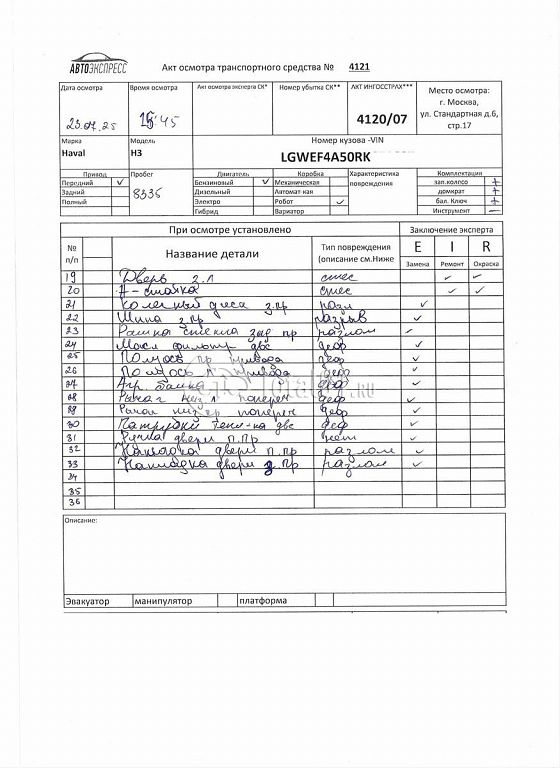 АВТОЭКСПРЕСС
Акт осмотра транспортного средства № 4121
Дата осмотра Время осмотра Акт осмотра эксперта СК* Номер убытка СК** АКТ ИНГОССТРАХ*** Место осмотра:
г. Москва,
ул. Стандартная д.6,
стр.17
15:45 4120/07
Марка Модель Номер кузова -VIN
Haval H3 LGWEF4A50RK
Привод Пробег Двигатель Коробка Характеристика повреждения Комплектация
Передний ✓ 8335 Бензиновый ✓ Механическая зап.колесо +
Задний Дизельный Автомат-кая домкрат +
Полный Электро Робот ✓ бал. Ключ +
Гибрид Вариатор Инструмент −
При осмотре установлено Заключение эксперта
№ п/п Название детали Тип повреждения (описание см.Ниже E I R
Замена Ремонт Окраска
19 Дверь з.л ✓ ✓
20 стойка ✓ ✓
21 з.пр ✓
22 Шина з.пр разрыв ✓
23 Рамка стекла зад пр разлом ✓
24 Масл фильтр двс деф ✓
25 пр привода деф ✓
26 л привода деф ✓
27 деф ✓
28 Рычаг л попереч деф ✓
29 Рычаг попереч деф ✓
30 Патрубки двс деф ✓
31 Ручка двери п.пр ✓
32 Накладка двери п.пр разлом ✓
33 Накладка двери з.пр разлом ✓
34
35
36
Totalby.RU
Описание:
Эвакуатор манипулятор платформа